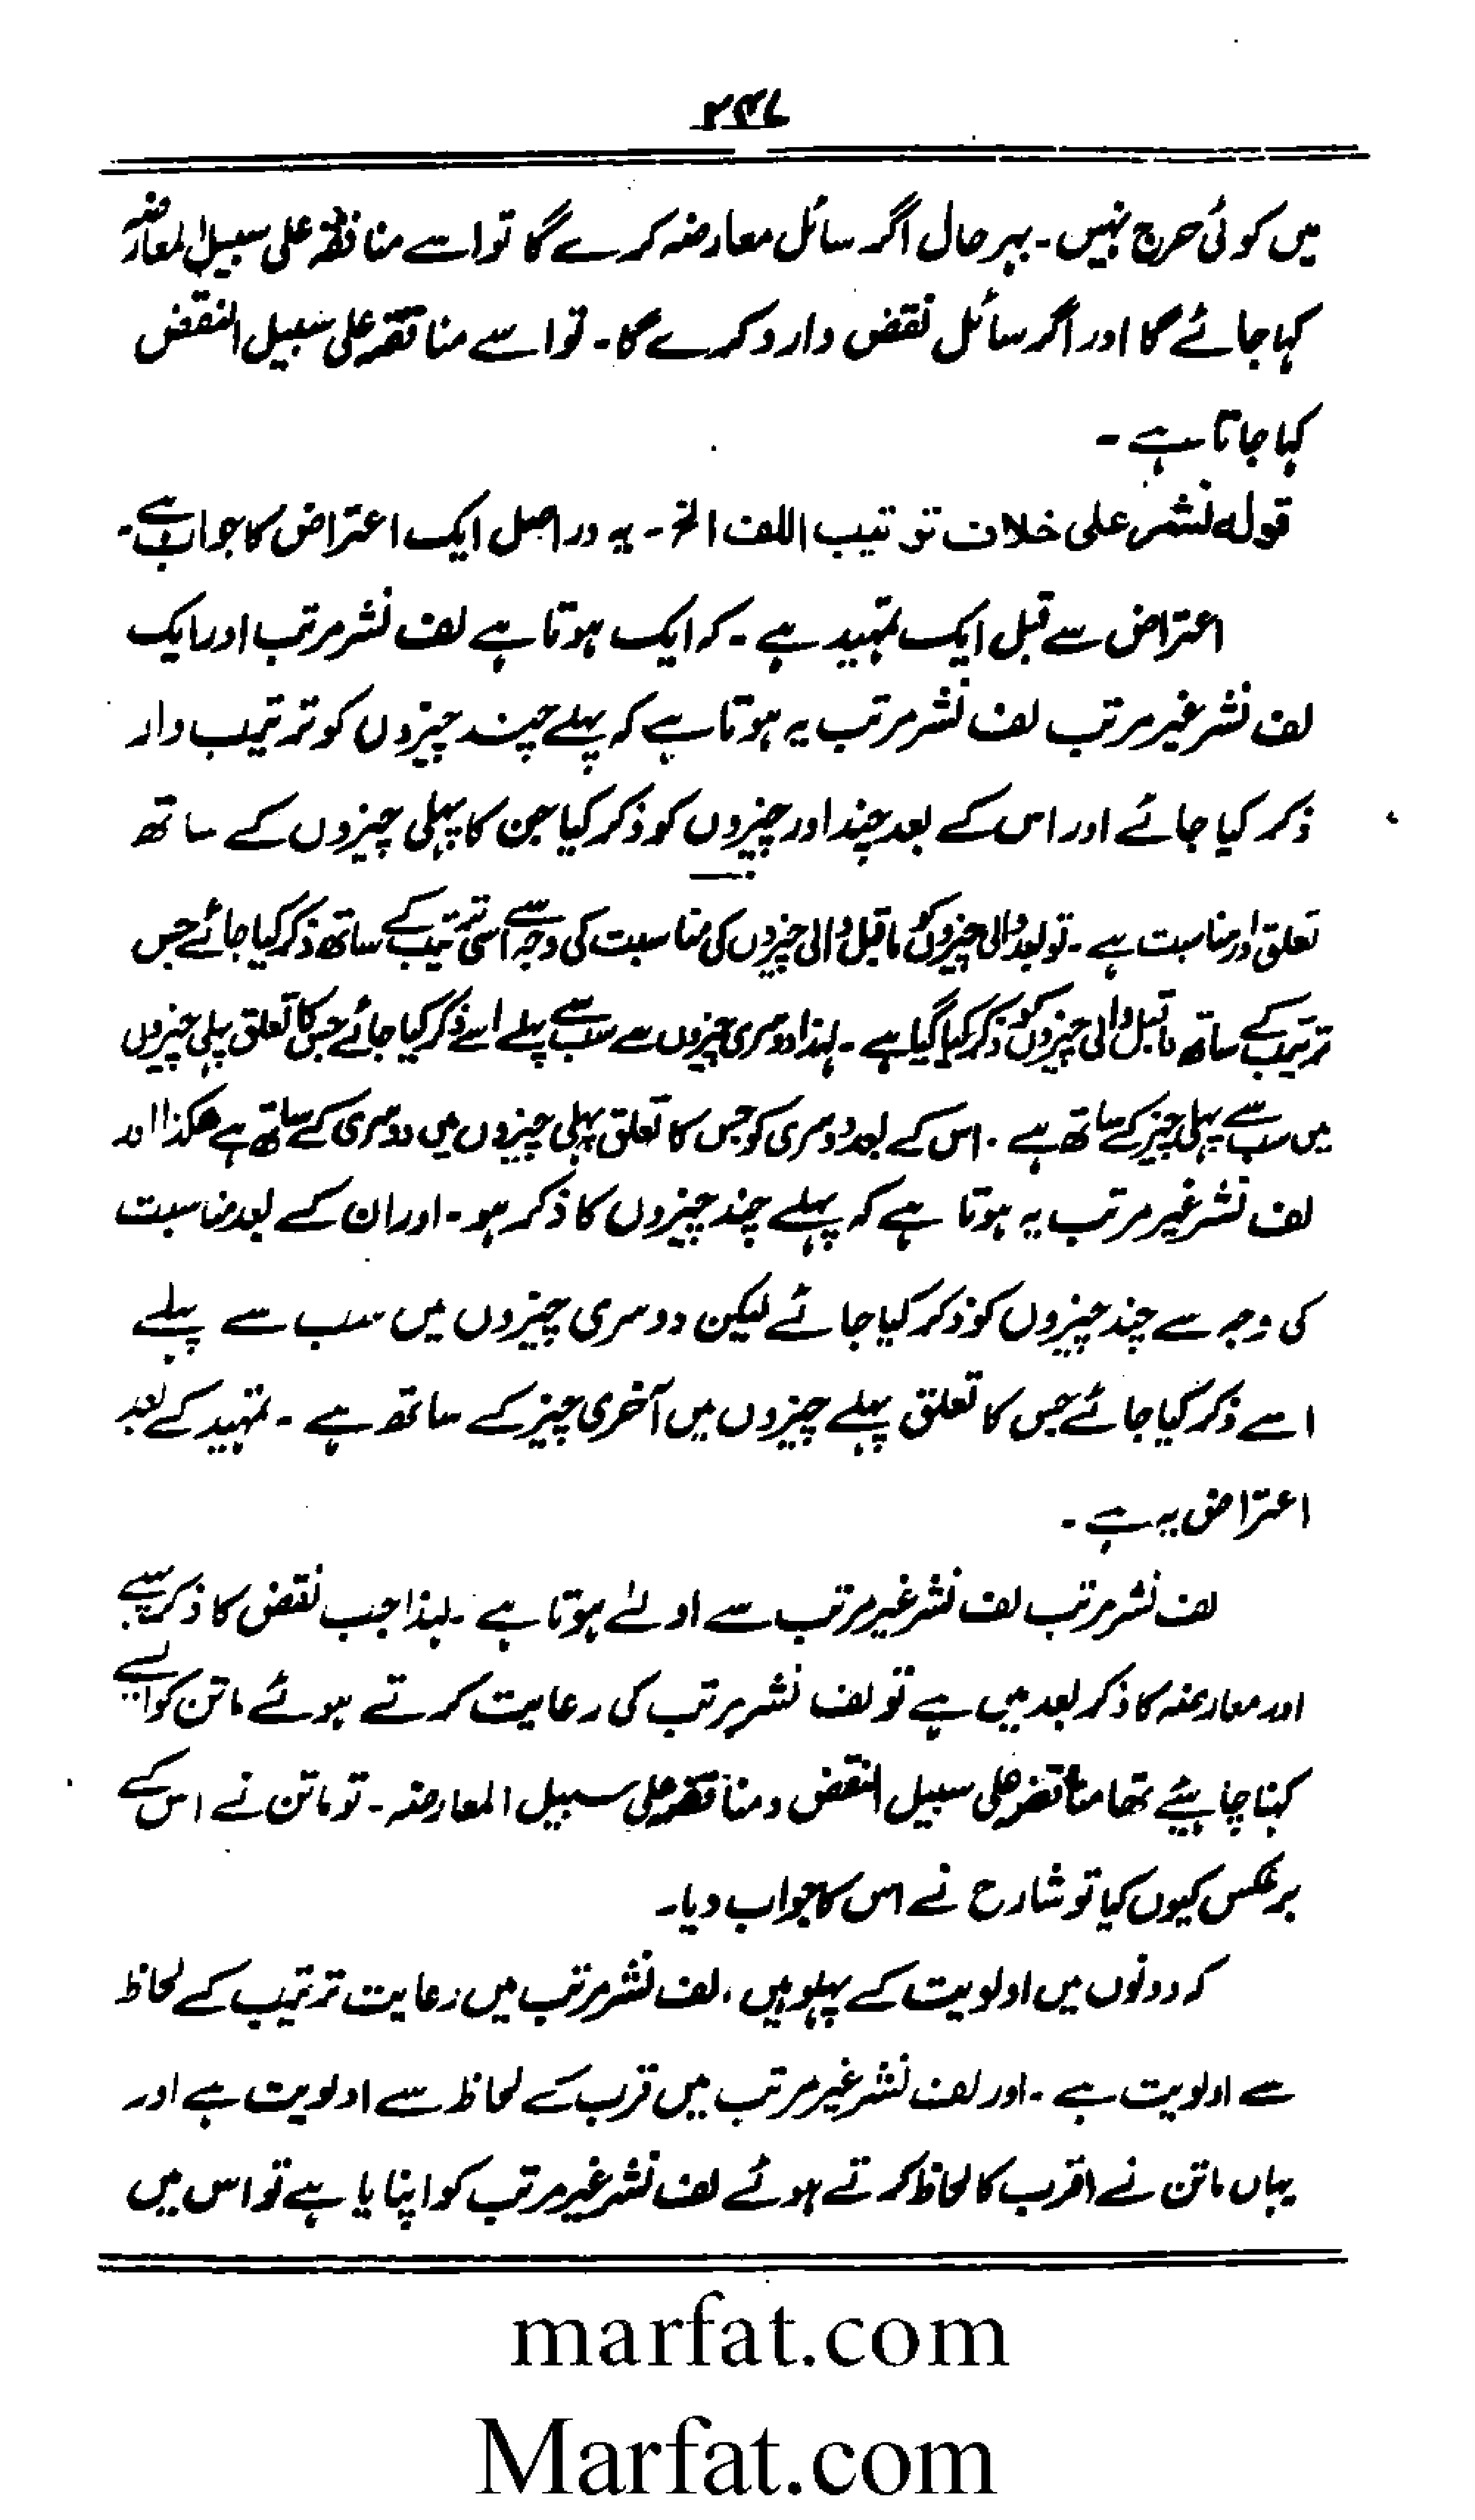 ۲۳۷
میں کوئی حرج نہیں۔ بہر حال اگر سائل معارضہ کرے گا تو اسے مناقضہ علی سبیل المعارضہ
کہا جائے گا اور اگر سائل نقض وارد کرے گا۔ تو اسے مناقضہ علی سبیل النقض
کہا جاتا ہے۔
قولہ نشر علی خلاف ترتیب اللف الخ۔ یہ دراصل ایک اعتراض کا جواب ہے۔
اعتراض سے قبل ایک تمہید ہے۔ کہ ایک ہوتا ہے لف نشر مرتب اور ایک
لف نشر غیر مرتب لف نشر مرتب یہ ہوتا ہے کہ پہلے چند چیزوں کو ترتیب وار
ذکر کیا جائے اور اس کے بعد چند اور چیزوں کو ذکر کیا جن کا پہلی چیزوں کے ساتھ
تعلق اور مناسبت ہے۔ تو بعد والی چیزوں کو ماقبل والی چیزوں کی مناسبت کی وجہ سے اسی ترتیب کے ساتھ ذکر کیا جائے جس
ترتیب کے ساتھ ماقبل والی چیزوں کو ذکر کیا گیا ہے۔ لہذا دوسری چیزوں سے سب سے پہلے اسے ذکر کیا جائے جس کا تعلق پہلی چیزوں
میں سب سے پہلی چیز کے ساتھ ہے۔ اس کے بعد دوسری کو جس کا تعلق پہلی چیزوں میں دوسری کے ساتھ ہے ھکذا اور
لف نشر غیر مرتب یہ ہوتا ہے کہ پہلے چند چیزوں کا ذکر ہو۔ اور ان کے بعد مناسبت
کی وجہ سے چند چیزوں کو ذکر کیا جائے لیکن دوسری چیزوں میں سب سے پہلے
اسے ذکر کیا جائے جس کا تعلق پہلے چیزوں میں آخری چیز کے ساتھ ہے۔ تمہید کے بعد
اعتراض یہ ہے۔
لف نشر مرتب لف نشر غیر مرتب سے اولےٰ ہوتا ہے۔ لہذا جب نقض کا ذکر پہلے ہے
اور معارضہ کا ذکر بعد میں ہے تو لف نشر مرتب کی رعایت کرتے ہوئے ماتن کو ایسے
کہنا چاہیئے تھا مناقضہ علی سبیل النقض و مناقضہ علی سبیل المعارضہ۔ تو ماتن نے اس کے
برعکس کیوں کیا تو شارح نے اس کا جواب دیا۔
کہ دونوں میں اولویت کے پہلو ہیں، لف نشر مرتب میں رعایت ترتیب کے لحاظ
سے اولویت ہے۔ اور لف نشر غیر مرتب میں قرب کے لحاظ سے اولویت ہے اور
یہاں ماتن نے اقرب کا لحاظ کرتے ہوئے لف نشر غیر مرتب کو اپنایا ہے تو اس میں
marfat.com
Marfat.com